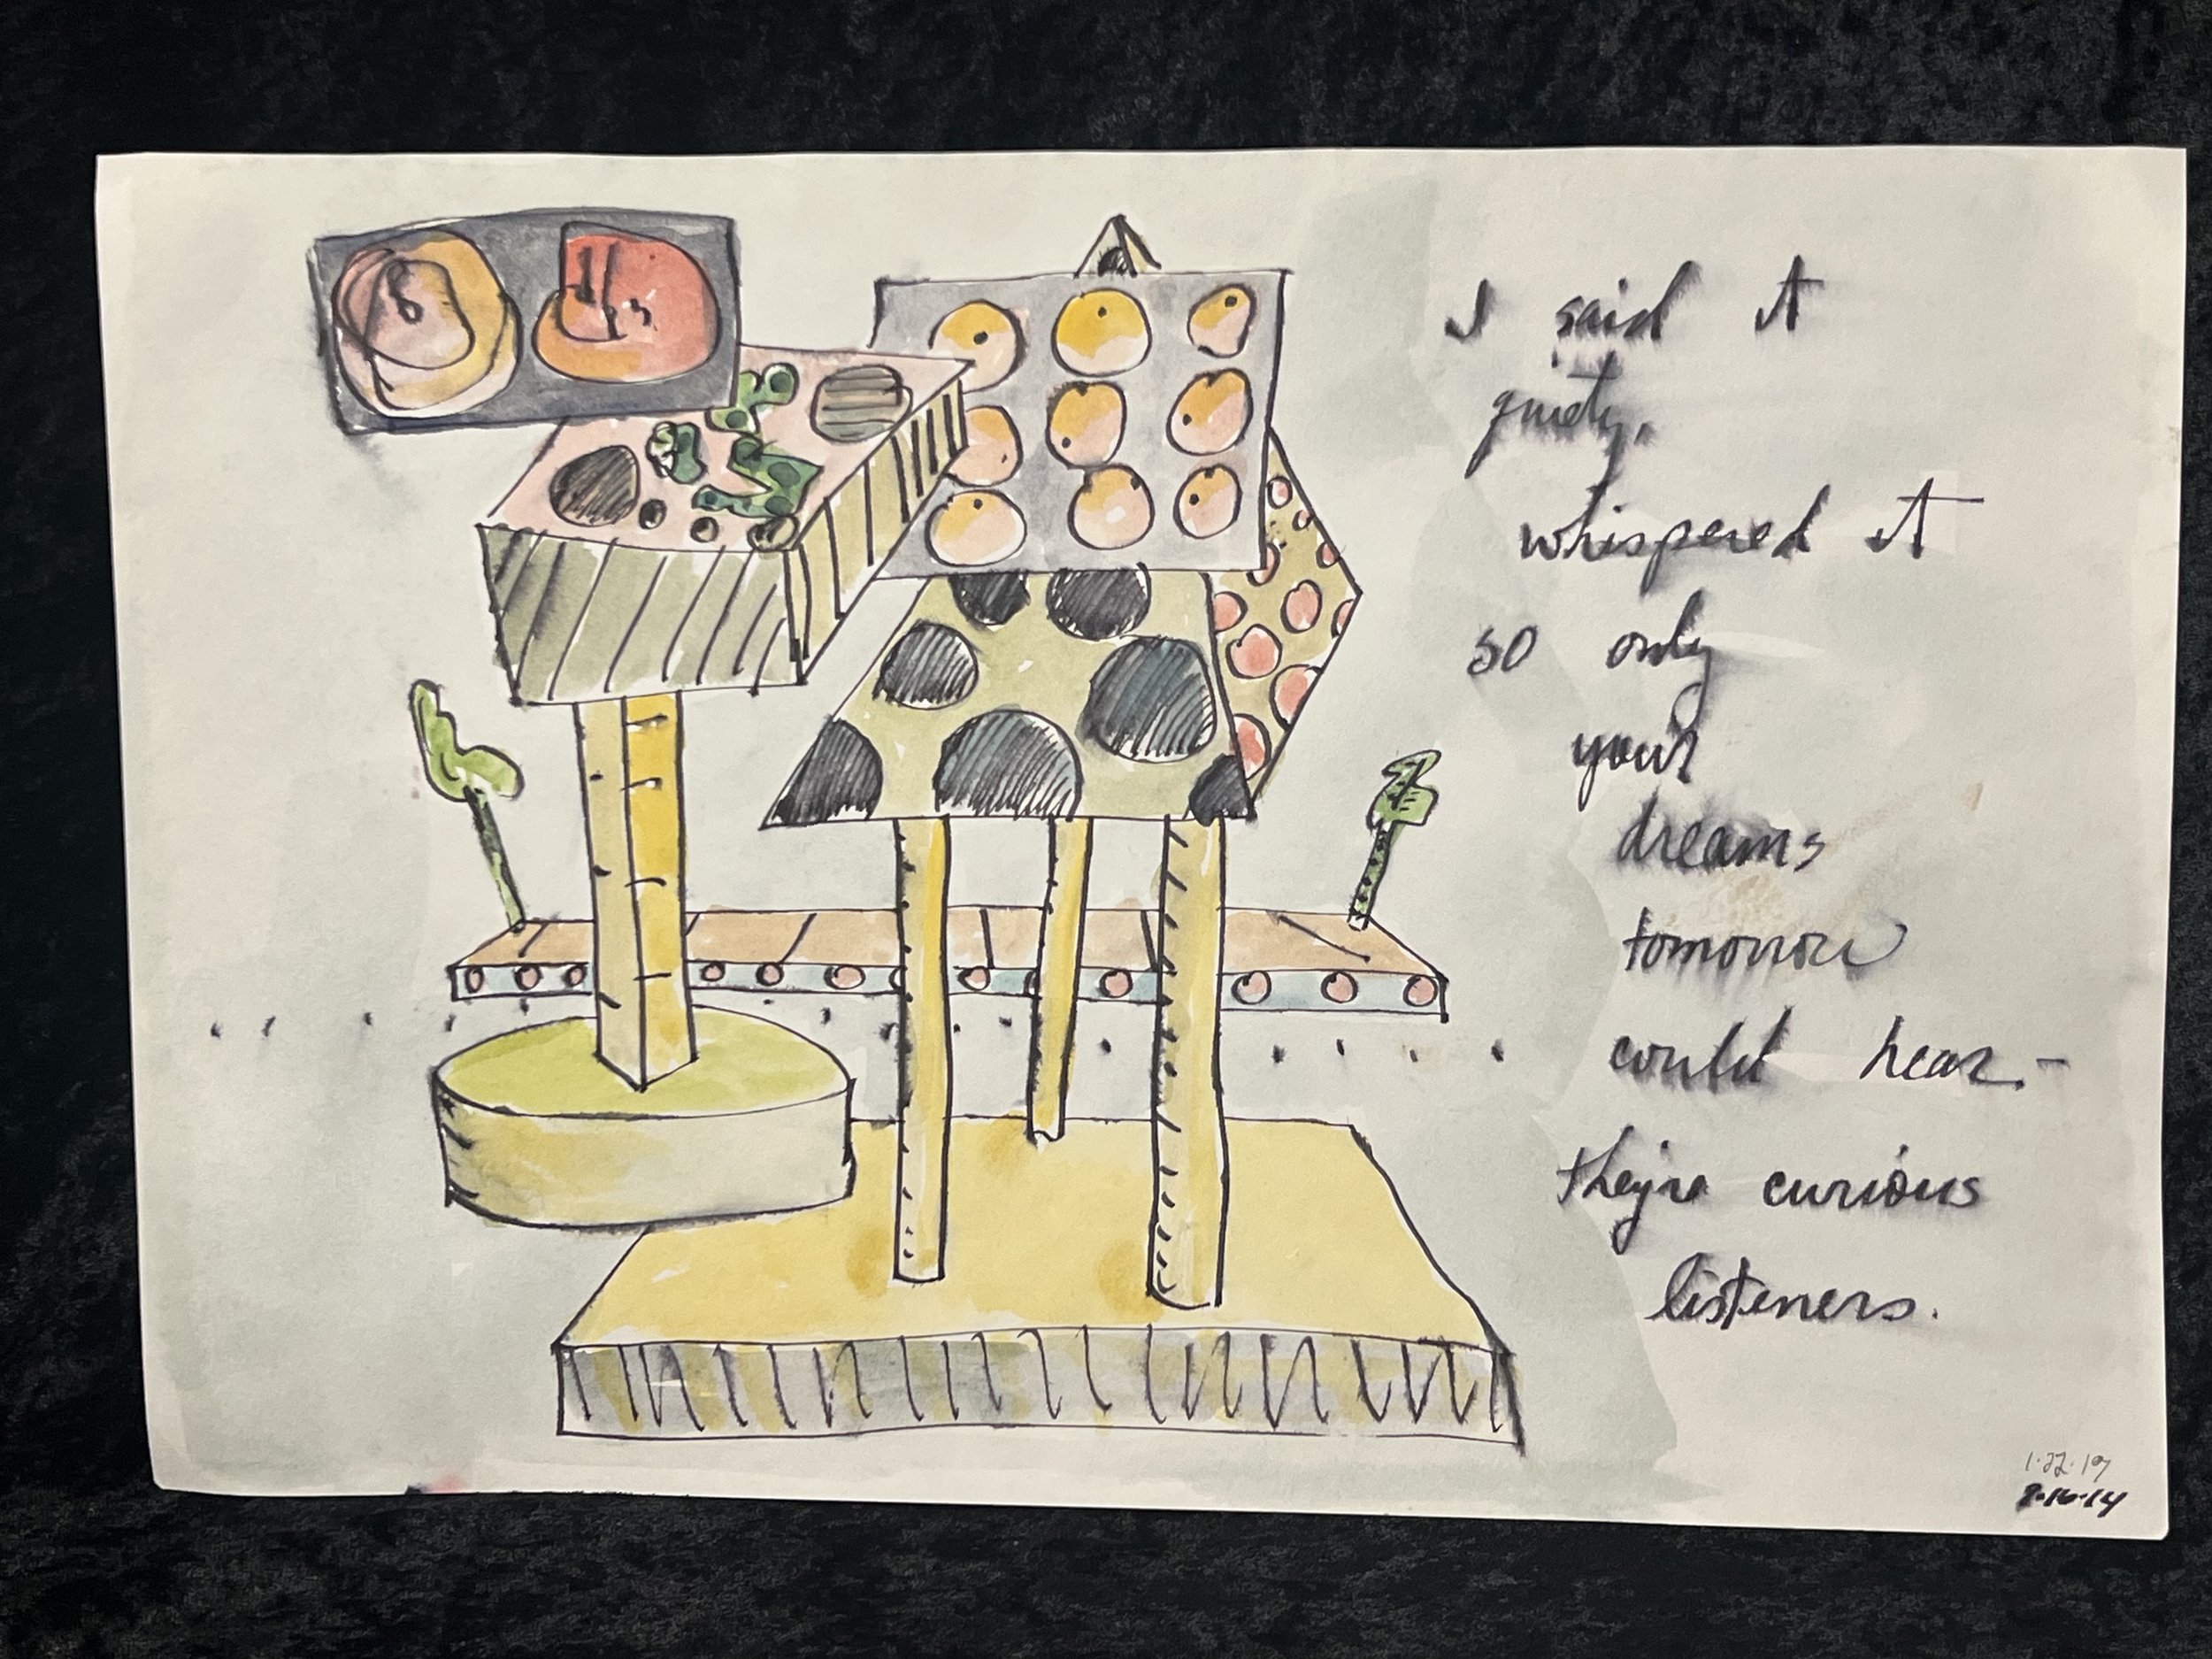 I said it
quietly,
whispered it
so only
your
dreams
tomorrow
could hear.-
they're curious
listeners.
1.22.19
2.16.14